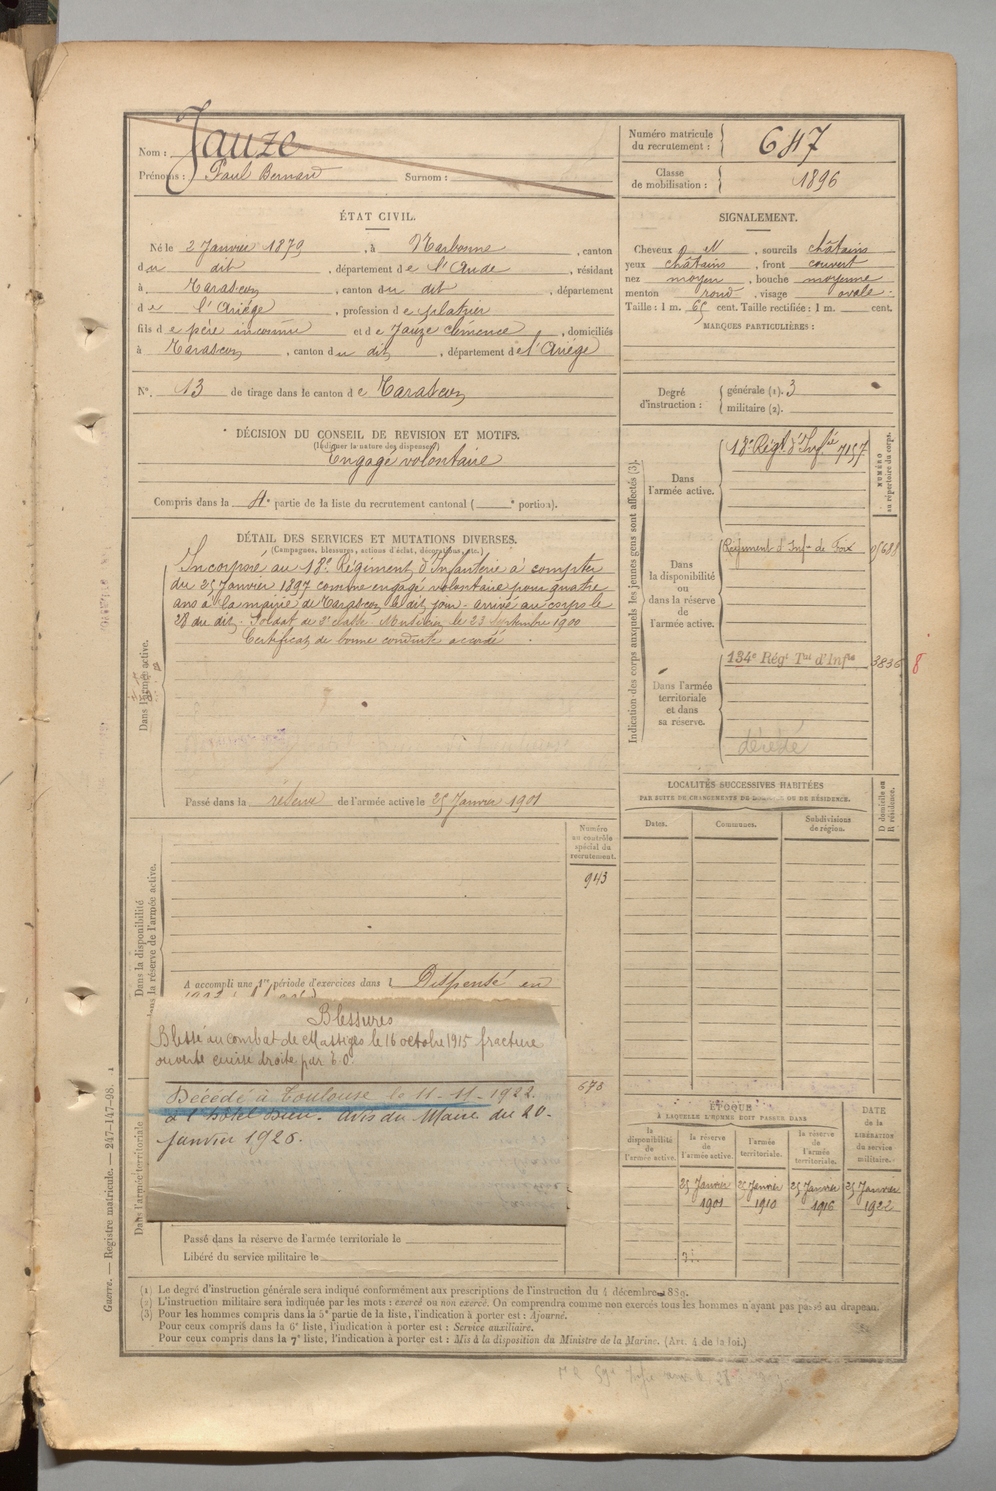 Nom : Jauze
Prénoms : Paul Bernard Surnom :
Numéro matricule du recrutement : 647
Classe de mobilisation : 1896
ÉTAT CIVIL.
Né le 2 Janvier 1879, à Narbonne, canton
du dit, département de l'Aude, résidant
à Tarascon, canton du dit, département
de l'Ariége, profession de platrier
fils de père inconnu et de Jauze Clémence, domiciliés
à Tarascon, canton du dit, département de l'Ariége
N° 13 de tirage dans le canton de Tarascon
SIGNALEMENT.
Cheveux et, sourcils châtains
yeux châtains, front couvert
nez moyen, bouche moyenne
menton rond, visage ovale.
Taille : 1 m. 65 cent. Taille rectifiée : 1 m. cent.
MARQUES PARTICULIÈRES :
Degré d'instruction : générale (1). 3
militaire (2).
DÉCISION DU CONSEIL DE REVISION ET MOTIFS.
(Indiquer la nature des dispenses)
Engagé volontaire
Compris dans la 4e partie de la liste du recrutement cantonal ( e portion).
DÉTAIL DES SERVICES ET MUTATIONS DIVERSES.
(Campagnes, blessures, actions d'éclat, décorations, etc.)
Dans l'armée active.
Incorporé au 18e Régiment d'Infanterie à compter
du 25 Janvier 1897 comme engagé volontaire pour quatre
ans à la mairie de Tarascon le dit jour - arrivé au corps le
28 du dit - Soldat de 2e classe
le 23 septembre 1900
Certificat de bonne conduite accordé.
Passé dans la réserve de l'armée active le 25 Janvier 1901
Indication des corps auxquels les jeunes gens sont affectés (3).
NUMÉRO au répertoire du corps.
Dans l'armée active.
18e Régt d'Infie 7157
Dans la disponibilité ou dans la réserve de l'armée active.
Régiment d'Inf- de Foix
Dans l'armée territoriale et dans sa réserve.
134e Régt Tal d'Infie 3836 8
décédé
LOCALITÉS SUCCESSIVES HABITÉES
PAR SUITE DE CHANGEMENTS DE DOMICILE OU DE RÉSIDENCE.
D domicile ou R résidence.
Dates. Communes. Subdivisions de région.
Numéro au contrôle spécial du recrutement.
943
Dans la disponibilité
dans la réserve de l'armée active.
A accompli une 1re période d'exercices dans l Dispensé en
Blessures
Blessé au combat de Massiges le 16 octobre 1915 fracture
ouverte cuisse droite par E.O.
Décédé à Toulouse le 11-11-1922
à l'Hôtel Dieu. avis du Maire du 20-
janvier 1926.
675
Dans l'armée territoriale
ÉPOQUE
À LAQUELLE L'HOMME DOIT PASSER DANS
DATE de la LIBÉRATION du service militaire.
la disponibilité de l'armée active. la réserve de l'armée active. l'armée territoriale. la réserve de l'armée territoriale.
25 Janvier 1901 25 Janvier 1910 25 Janvier 1916 25 Janvier 1922
Passé dans la réserve de l'armée territoriale le
Libéré du service militaire le
(1) Le degré d'instruction générale sera indiqué conformément aux prescriptions de l'instruction du 4 décembre 1889.
(2) L'instruction militaire sera indiquée par les mots : exercé ou non exercé. On comprendra comme non exercés tous les hommes n'ayant pas passé au drapeau.
(3) Pour les hommes compris dans la 5e partie de la liste, l'indication à porter est : Ajourné.
Pour ceux compris dans la 6e liste, l'indication à porter est : Service auxiliaire.
Pour ceux compris dans la 7e liste, l'indication à porter est : Mis à la disposition du Ministre de la Marine. (Art. 4 de la loi.)
Guerre. — Registre matricule. — 247-147-98.